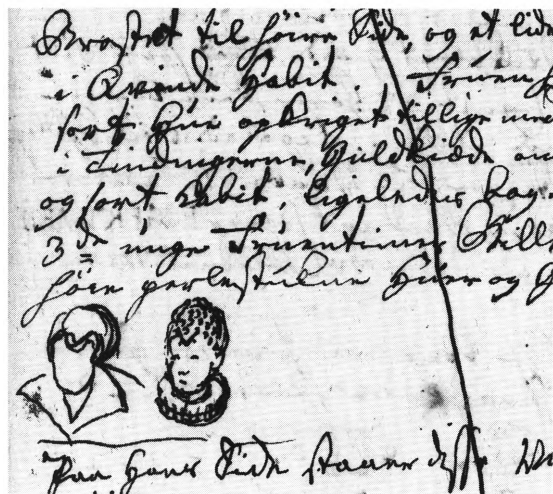 Brystet til høire Side, og et lide
i Qvinde Habit. Fruen
sort Hue opkriget tillige med
i Tindingerne, Guldkiæde om
og sort Habit, ligeledes bag
3de unge Fruentimer Bille
høie perlestukne Huer og
Paa Hans Side staaer disse